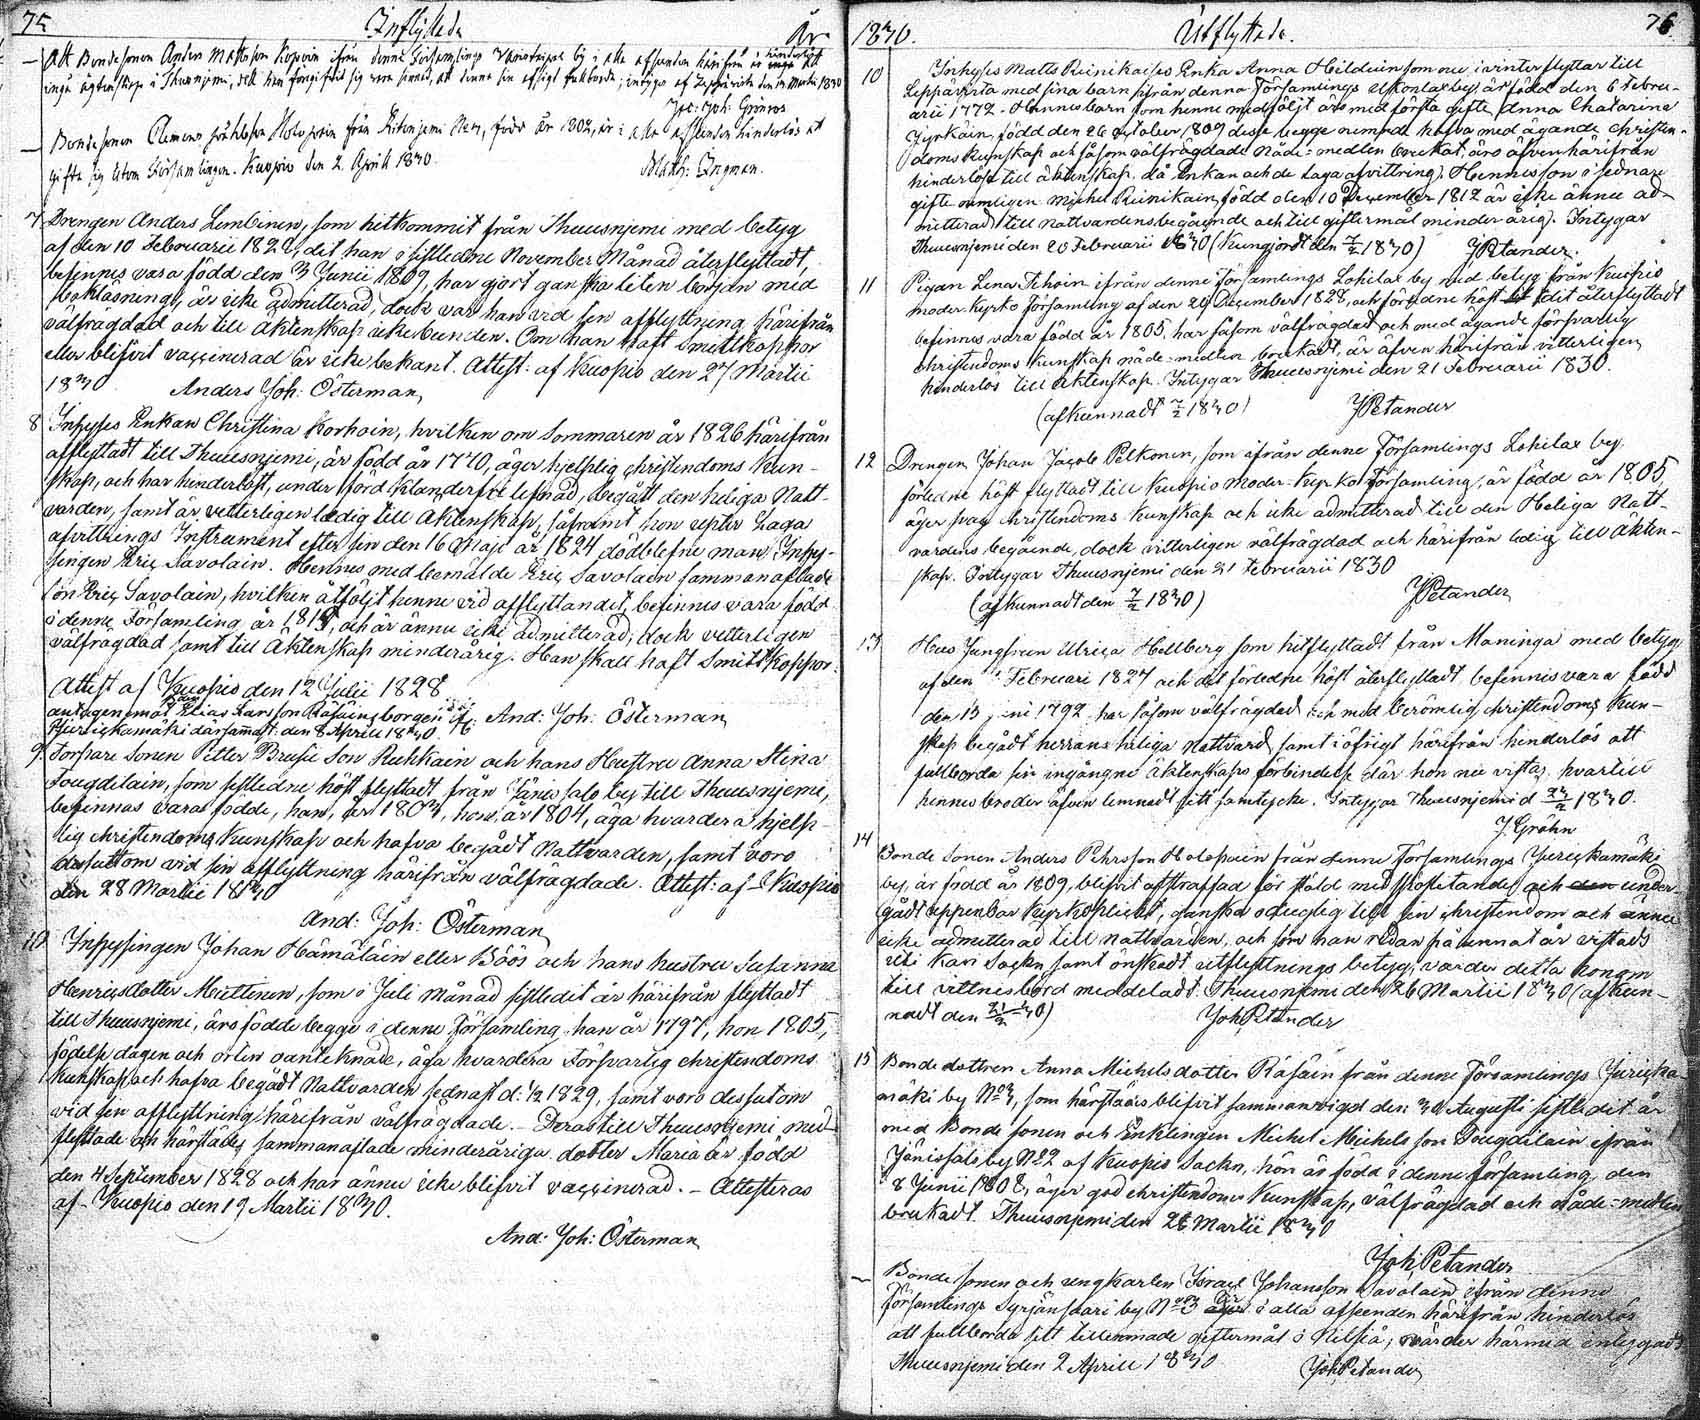 75 Inflyttade År
Att Bondesonen Anders Mattsson ifrån denne Församlings by i alla afseenden härifrån är hinderlöst att
ingå ägtenskap i Thuusnjemi, dett han föregifvit sig vara sinnad, att denne sin afsigt fullborda; intygas af Leppävirta den Martii 1830
Joh: Grönros
Bondesonen Clemens Holopain från Ritonjemi, född år 1802, är i alla afseenden hinderlös at
gifta sig utom Församlingen. Kuopio den 2 April 1830. Math: Ingman.
7 Drengen Anders Lembinen, som hitkommit från Thuusnjemi med betyg
af den 10 Februarii 1828, det han i sistledne November Månad återflyttadt,
befinnes vara född den 3 Junii 1809, har gjort ganska liten början med
bokläsning, är icke admitterad, dock var han vid sin afflyttning härifrån
välfrägdad och till Äktenskap icke bunden. Om han haft Smittkoppor
eller blifvit vaccinerad är icke bekant. Attest: af Kuopio den 27 Martii
1830 Anders Joh: Österman
8 Inhyses Enkan Christina Korhoin, hvilken om Sommaren år 1826 härifrån
afflyttadt till Thuusnjemi, är född år 1770, äger hjelplig christendoms Kun-
skap, och har hinderlöst, under förd Klanderfri lefnad, begått den heliga Natt-
varden, samt är vetterligen ledig till Äktenskap, såframt hon Laga
afvittrings Instrument efter sin den 16 Maji år 1824 dödblefne man, Inhy-
singen Eric Savolain. Hennes med bemälde Eric Savolain sammanaflade
son Eric Savolain, hvilken åtföljt henne vid afflyttandet, befinnes vara född
i denne Församling år 1813, och är ännu icke admitterad, dock vetterligen
välfrägdad samt till Äktenskap minderårig. Han skall haft Smittkoppor.
Attest af Kuopio den 12 Julii 1828
antagen mot Elias Larsson Räsäins borgen And: Joh: Österman
Jurickamäki den 8 Aprill 1830.
9. Torpare Sonen Petter Brusii Son Ruhkain och hans Hustru Anna Stina
Tougdilain, som sistledne höst flyttadt från Jänissalo by till Thuusnjemi,
befinnas vara födde, han, år 1803, hon, år 1804, äga hvardera hjelp-
lig christendoms Kunskap och hafva begådt Nattvarden, samt voro
dessuttom vid sin afflyttning härifrån välfrägdade. Attest: af Kuopio
den 28 Martii 1830
And: Joh: Österman
10 Inhysingen Johan Hämäläin eller Böös och hans hustru Susanna
Henricsdotter Miettinen, som i Juli Månad sistledit år härifrån flyttadt
till Thuusnjemi, äro födde begge i denne Församling, han år 1797, hon 1805,
födelse dagen och orten oanteknade, äga hvardera Försvarlig christendoms
Kunskap och hafva begådt Nattvarden sednast d: 1/2 1829, samt voro dessutom
vid sin afflyttning härifrån välfrägdade. – Deras till Thuusnjemi med-
flyttade och härstädes sammanaflade minderåriga dotter Maria är född
den 4 September 1828 och har ännu icke blifvit vaccinerad. – Attesteras
af Kuopio den 19 Martii 1830.
And: Joh: Österman
1830. Utflyttade. 76
10 Inhyses Matts Reinikaises Enka Anna Hilduin som nu i vinter flyttar till
Leppävirta med sina barn ifrån denna Församlings by, är född den 6 Febru-
arii 1772. Hennes barn som henne medföljt äro med första gifte Anna Chatarina
Jyrkäin, född den 26 October 1809 desse begge nemnde hafva med ägande christen-
doms kunskap och såsom välfrägdade Nåde-medlen brukat, äro äfven härifrån
hinderlöse till äktenskap, då Enkan och de Laga afvittring. Hennes son i sednare
gifte nemligen Michel Reinikain, född den 10 December 1812 är icke ännu ad-
mitterad till nattvardens begående och till giftermål minder årig. Intygar
Thuusnjemi den 20 Februarii 1830 (Kungjordt den 7/2 1830) JPetander.
11 Pigan Lena Tihoin ifrån denne Församlings Lohilax by med betyg från Kuopio
moder-kyrko Församling af den 29 December 1828, och förledne höst dit återflyttadt
befinnes vara född år 1805, har såsom välfrägdad och med ägande försvarlig
Christendoms kunskap nåde-medlen brukadt, är äfven härifrån vitterligen
hinderlös till äktenskap. Intygar Thuusnjemi den 21 Februarii 1830.
(afkunnadt 7/2 1830) JPetander
12 Drengen Johan Jacob Pelkonen, som ifrån denne Församlings Lohilax by
förledne höst flyttadt till Kuopio Moder-Kyrko Församling, är född år 1805,
äger svag christendoms kunskap och icke admitterad till den Heliga Natt-
vardens begående, dock vitterligen välfrägdad och härifrån ledig till äkten-
skap. Intygar Thuusnjemi den 21 Februarii 1830
(afkunnadt den 7/2 1830) JPetander
13 Hus Jungfrun Ulrica Hellberg som hitflyttadt från Maninga med betyg
af den Februari 1827 och dit förledne höst återflyttadt befinnes vara född
den 13 juni 1792, har såsom välfrägdad och med berömlig christendoms kun-
skap begådt herrans heliga nattvard, samt i öfrigt härifrån hinderlös att
fullborda sin ingångne äktenskaps förbindelse där hon nu vistas, hvartill
hennes broder äfven lemnadt sitt samtycke. Intygar Thuusnjemi d 1830.
J. Gröhn
14 Bonde Sonen Anders Pehrsson Holopain från denne Församlings Jurickamäki
by, är född år 1809, blifvit afstraffad för stöld och under-
gådt uppenbar kyrkoplickt, ganska oduglig till sin christendom och ännu
icke admitterad till nattvarden, och som han redan på annat år vistads
uti Kavi Sockn samt önskadt utflyttnings betyg, varder detta honom
till vittnesbörd meddeladt. Thuusnjemi den 26 Martii 1830 (afkun-
nadt den 30) Joh Petander
15 Bonde dottren Anna Michelsdotter Räsäin från denne Församlings Juricka-
mäki by No 3, som härstädes blifvit sammanvigd den 30 Augusti sistledit år
med Bonde sonen och Enklingen Michel Michelsson Tougdilain ifrån
Jänissalo by No 2 af Kuopio Sockn, hon är född i denne församling den
8 Junii 1808, äger god christendoms Kunskap, välfrägdad och Nåde-medlen
brukadt. Thuusnjemi den 26 Martii 1830
Joh Petander
Bonde sonen och ungkarlen Israel Johansson Savolain ifrån denne
Församlings Syrjänsaari by No 3 är i alla afseenden härifrån hinderlös
att fullborda sitt tillernade giftermål i Nilsiä; varder härmed intygadt.
Thuusnjemi den 2 Aprill 1830 Joh Petander